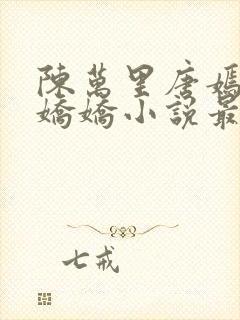 陳萬里唐嫣
嬌嬌小說最
七戒